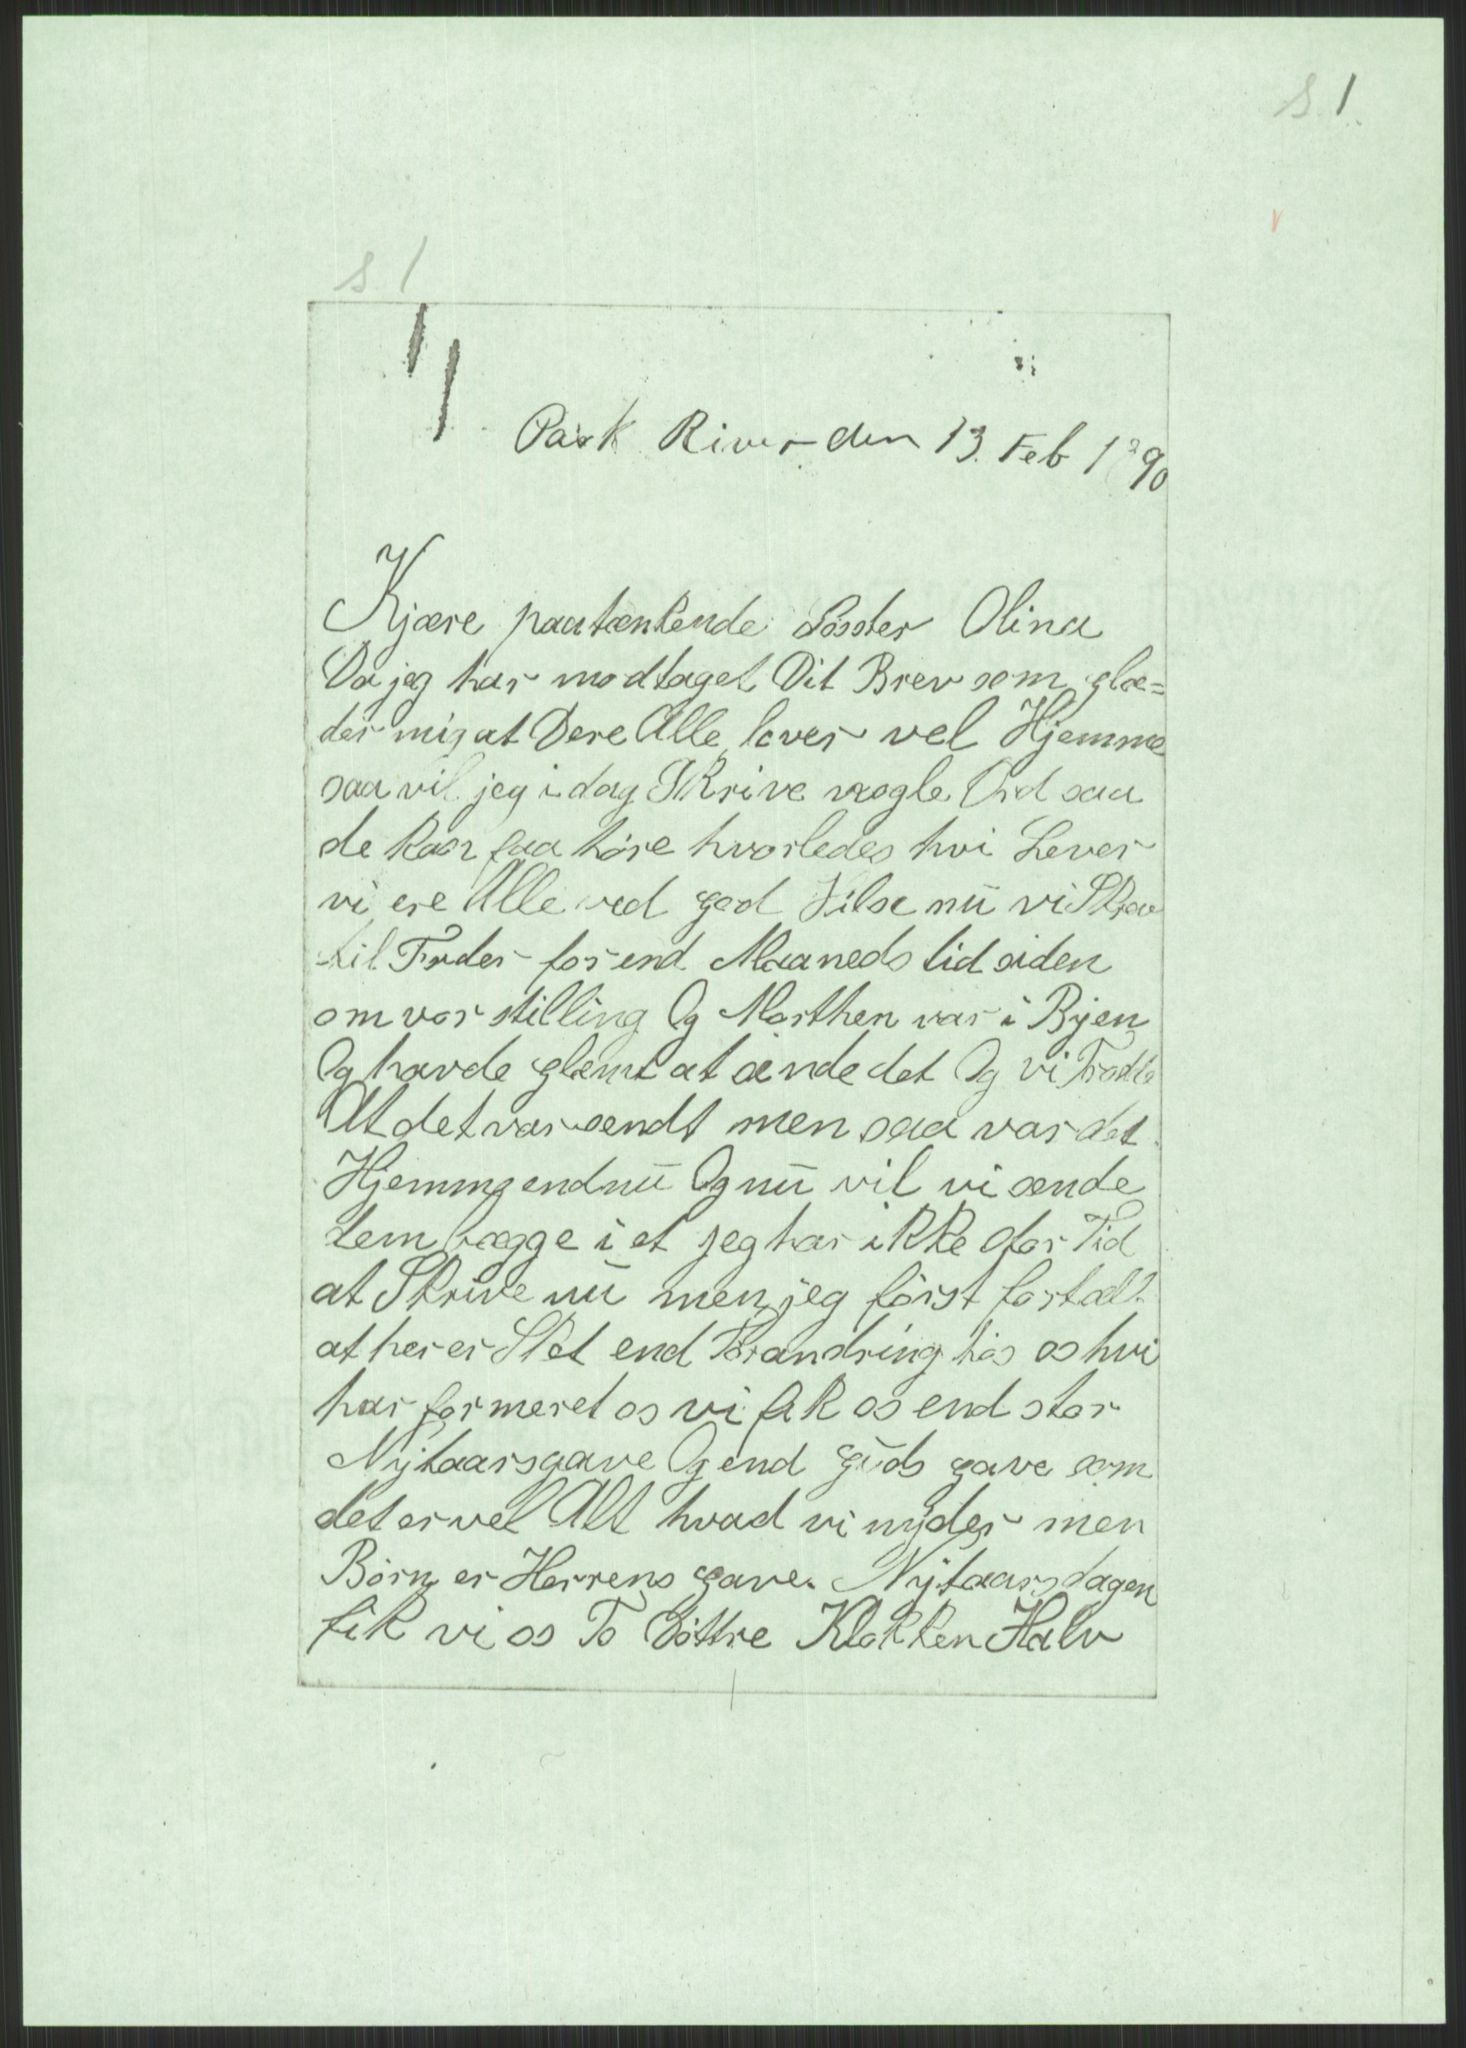 S. 1.
S 1
Park River den 13. Feb 1890
Kjære paatænkende Søster Olina
Da jeg har modtaget Dit Brev som glæ=
der mig at Dere Alle lever vel Hjemme
saa vil jeg i dag Skrive nogle Ord saa
de kan faa høre hvorledes hvi Lever
vi ere Alle ved god Hilse nu vi Skrev
til Fader for end Maaneds tid siden
om vor stilling Og Marthen var i Byen
Og havde glemt at sende det Og vi Trodde
At det var sendt men saa var det
Hjemme endnu Og nu vil vi sende
dem begge i et jeg har ikke stor Tid
at Skrive nu men jeg først fortælt
at her er Sket end Forandring hos os hvi
har formeret os vi fik os end stor
Nytaarsgave Og end Guds gave som
det er vel Alt hvad vi nyder men
Børn er Herrens gave. Nytaarsdagen
fik vi os To Døttre Klokken Halv